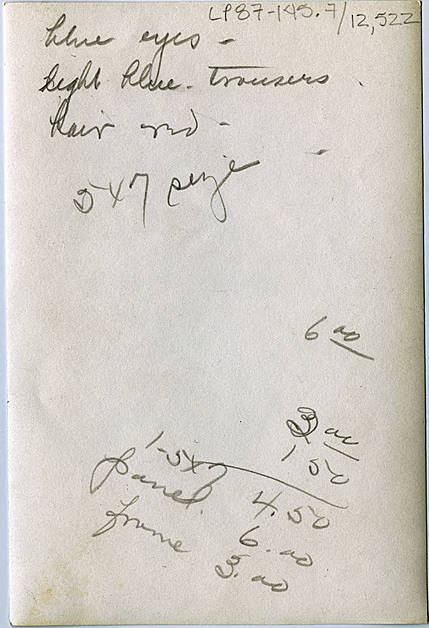 LP87-145.7/12,522
blue eyes -
light blue - trousers
hair red -
5x7 size
6 00
3 00
1 50
1-5x7 4.50
panel 6.00
frame 3.00